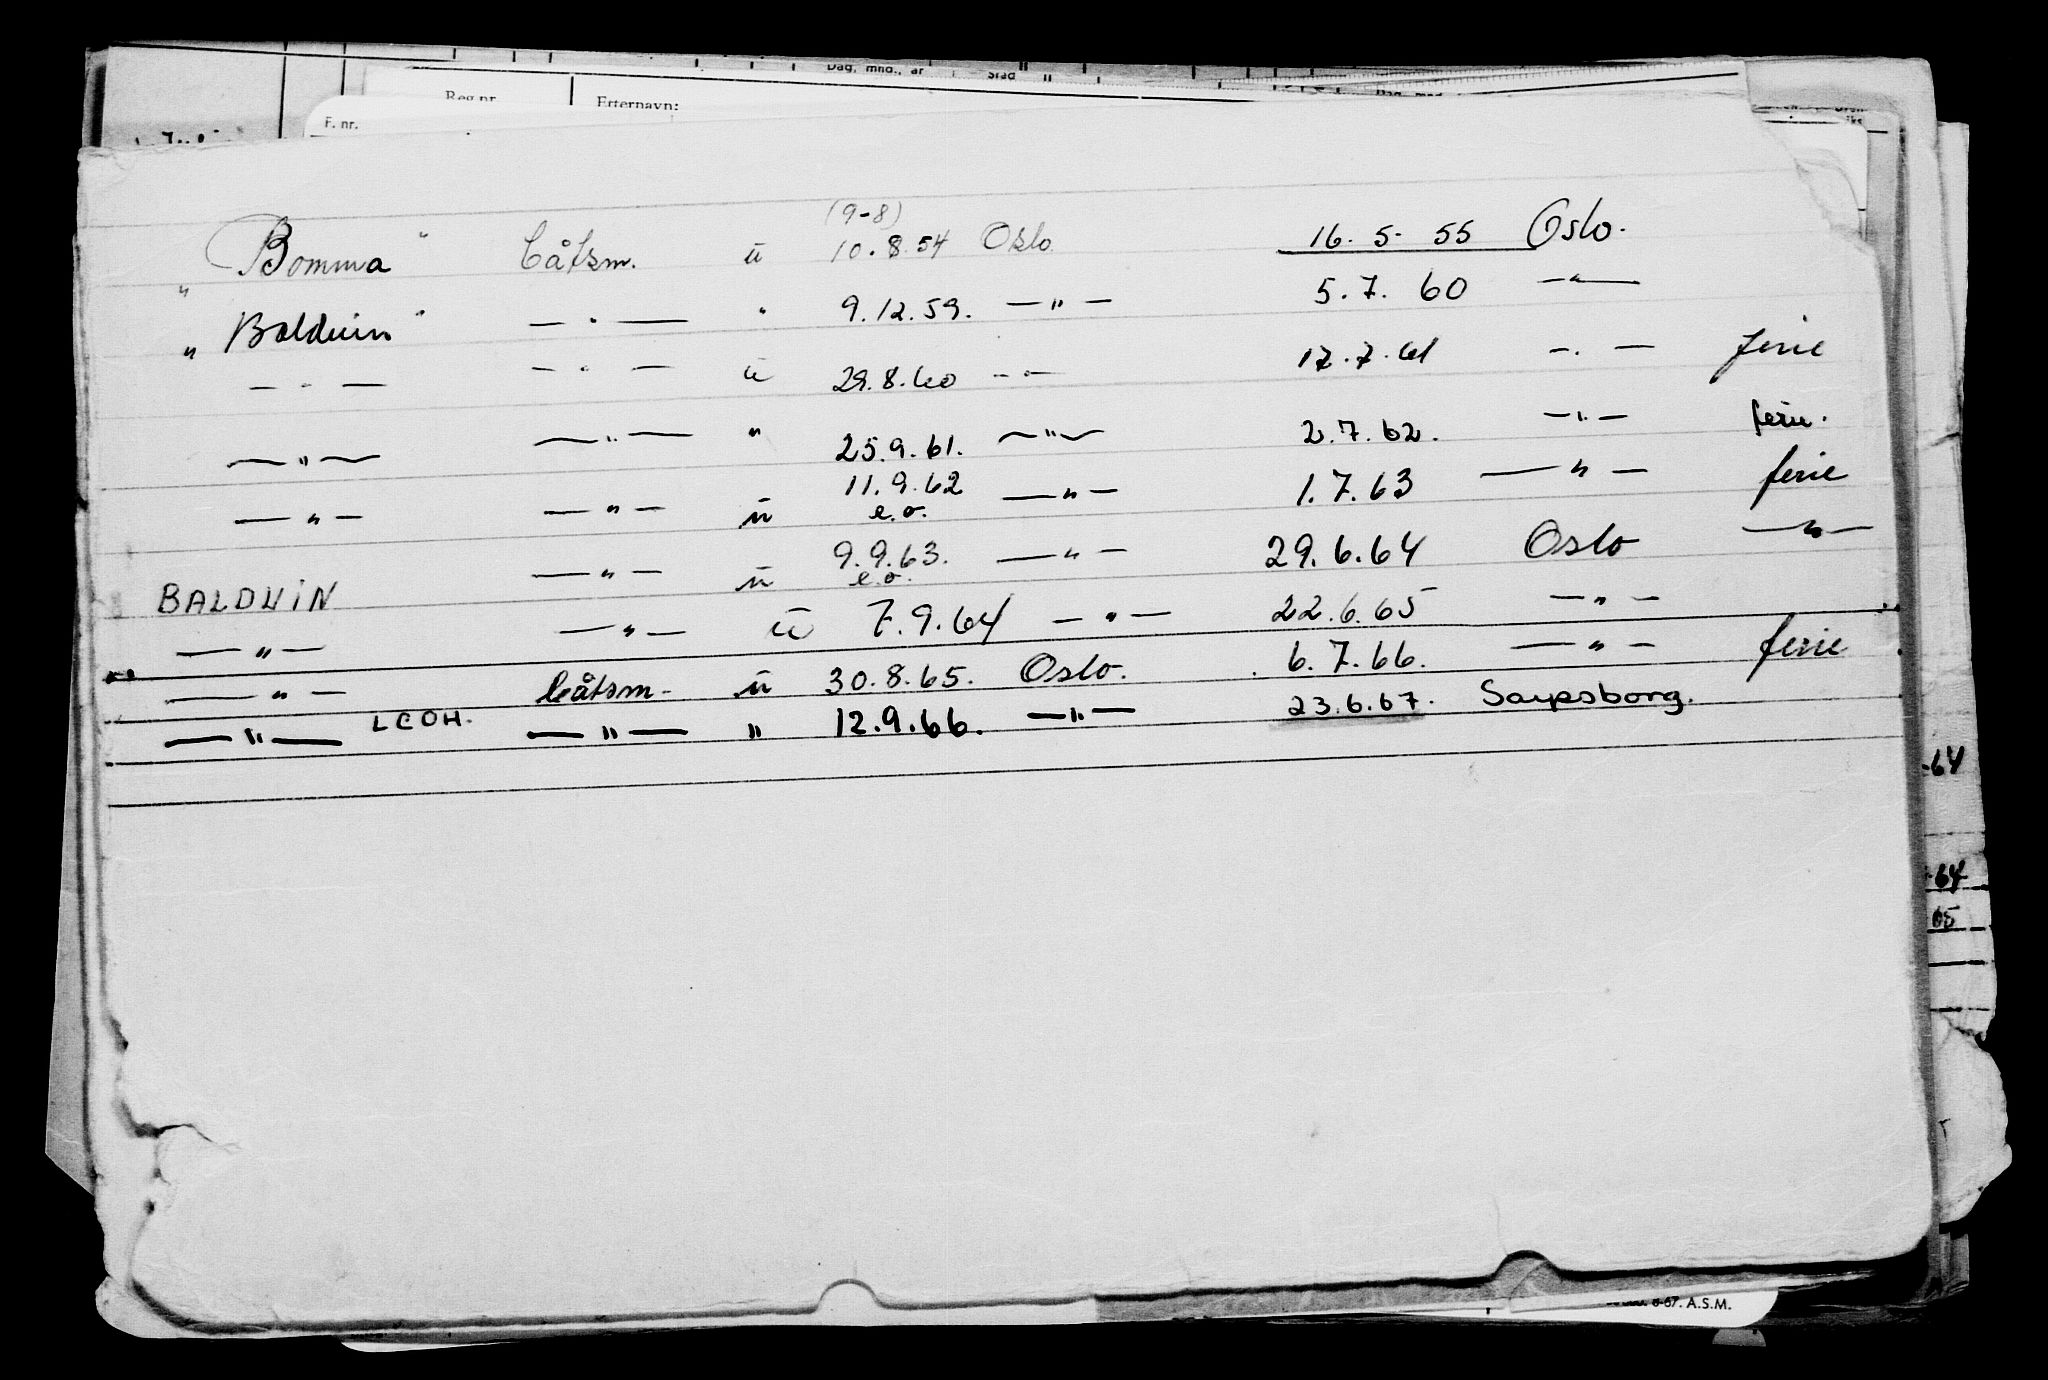 Dag, mnd., år Sted
Reg.nr. Etternavn:
F. nr.
(9-8)
„ Bomma " båtsm. u 10.8.54 Oslo 16.5.55 Oslo.
„ Balduin " — " — " 9.12.59. — " — 5.7.60 — " —
— " — — " — u 29.8.60 — " — 17.7.61 — " — ferie
— " — — " — " 25.9.61. — " — 2.7.62. — " — ferie.
— " — — " — u 11.9.62 — " — 1.7.63 — " — ferie
e.o.
BALDUIN — " — u 9.9.63. — " — 29.6.64 Oslo — " —
e.o.
— " — — " — u 7.9.64 — " — 22.6.65 — " —
— " — båtsm. u 30.8.65. Oslo. 6.7.66. — " — ferie
— " — LCOH. — " — " 12.9.66. — " — 23.6.67. Sarpsborg.
-64
-64
65
6-67. A.S.M.